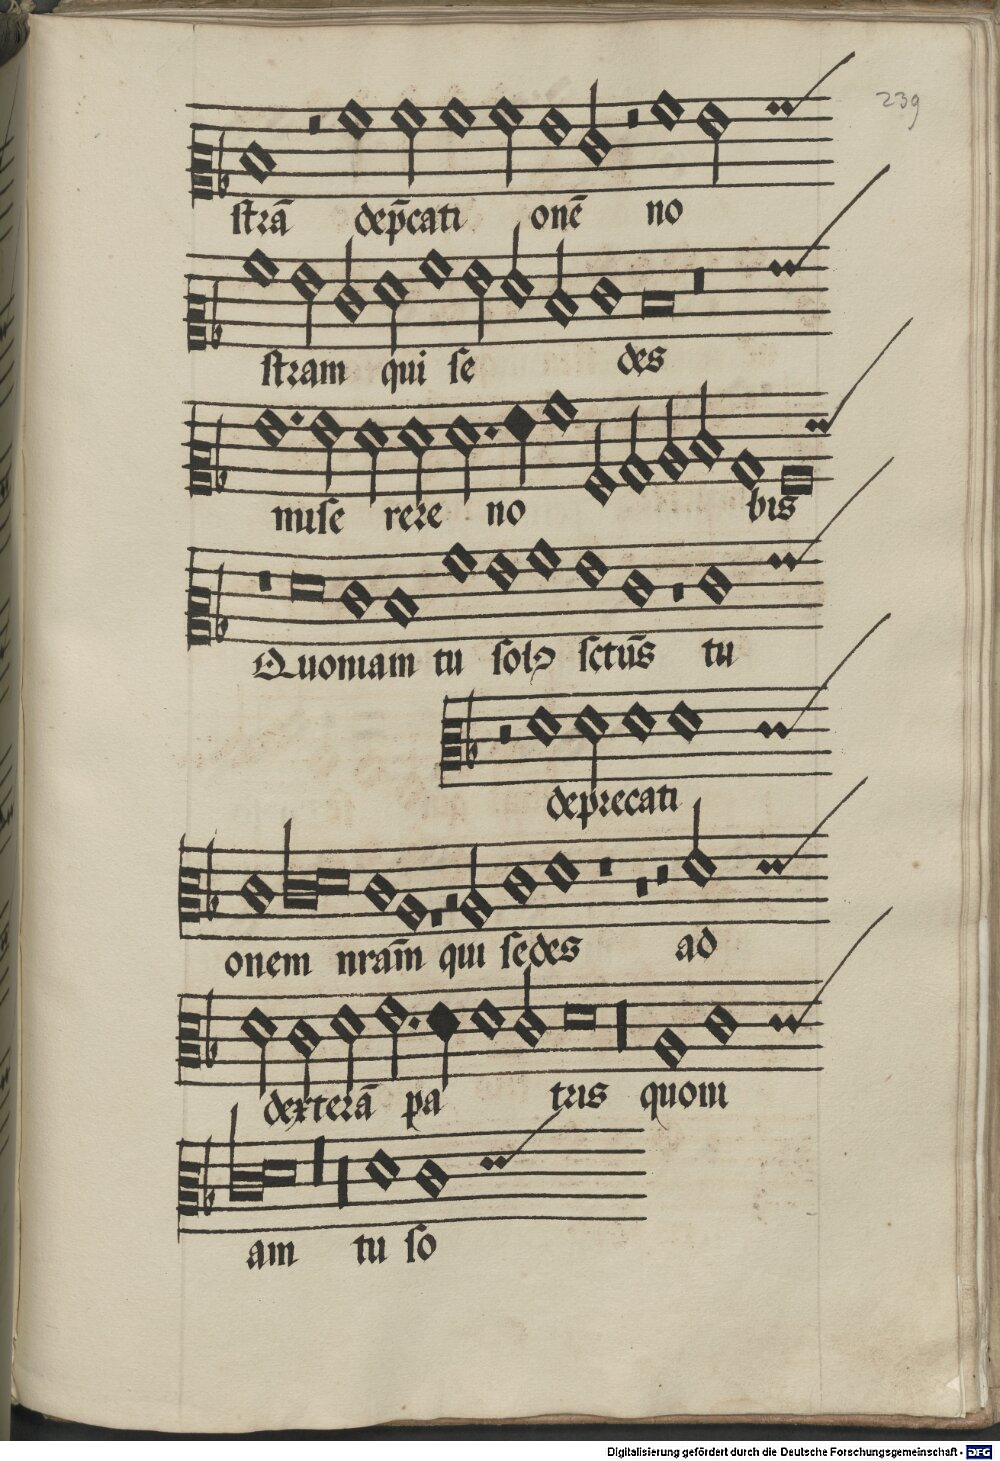 239
ſtrā dep̄cati onē no
ſtram qui ſe des
miſe rere no bis
Quoniam tu ſolꝰ ſctūs tu
deprecati
onem nram̄ qui ſedes ad
dexterā pa tris quoni
am tu ſo
Digitalisierung gefördert durch die Deutsche Forschungsgemeinschaft - DFG